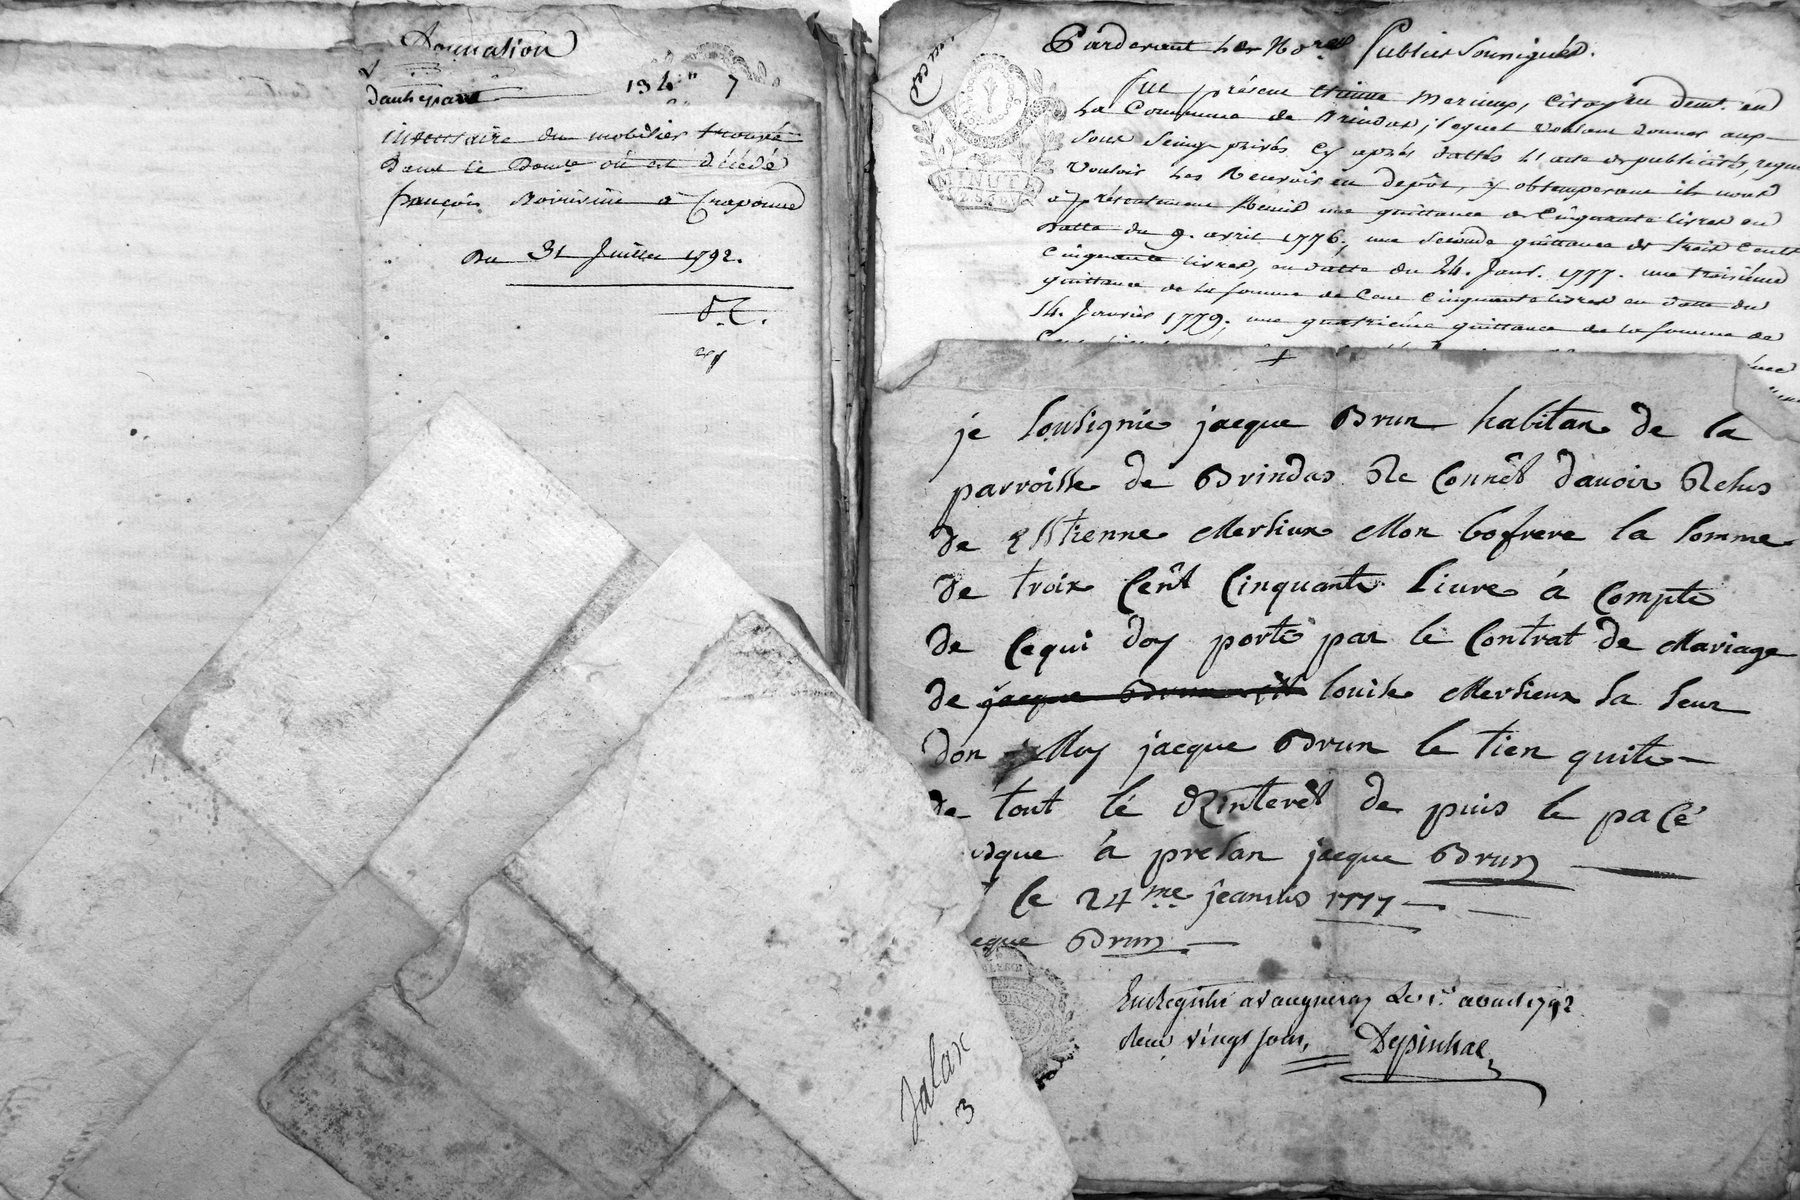 Donnation
134 " 7
inventaire du mobilier trouvé
Dans le Domle où est Décédé
françois à Craponne
Du 31 Juillet 1792.
Pardevant Les Nores Publics Soussignés.
Fut présent Etienne Merieux, Citoyen demt. en
La Commune de Brindas, lequel voulant donner aux
sous seings privés cy après dattés et acte de publicités, requis
vouloir les Recevoir en depôt, y obtemperant il nous
a présentement Remis une quittance de Cinquante livres en
Datte du 9. avril 1776, une seconde quittance de trois Cents
Cinquante livres, en datte du 24. Janv. 1777. une troisième
quittance de la somme de Cent Cinquante livres en datte du
14. Janvier 1779; une quatrième quittance de la somme de
je sousignié jacque Brun habitan de la
parroisse de Brindas Re Connêt davoir Resus
de Esstienne Mersieux Mon bofrere la somme
de troix Cent Cinquante Livre à Compte
de Cequi doy porté par le Contrat de Mariage
de jacque Brun louise Mersieux sa seur
don Moy jacque Brun le tien quite
de tout lé Rinterêt de puis le pacé
usque à presan jacque Brun
le 24me jeanvis 1777
cque Brun
Enregistré a vaugneray Le 1er aoust 1792
Recu vingt sols, Depinhac
Jalax
3